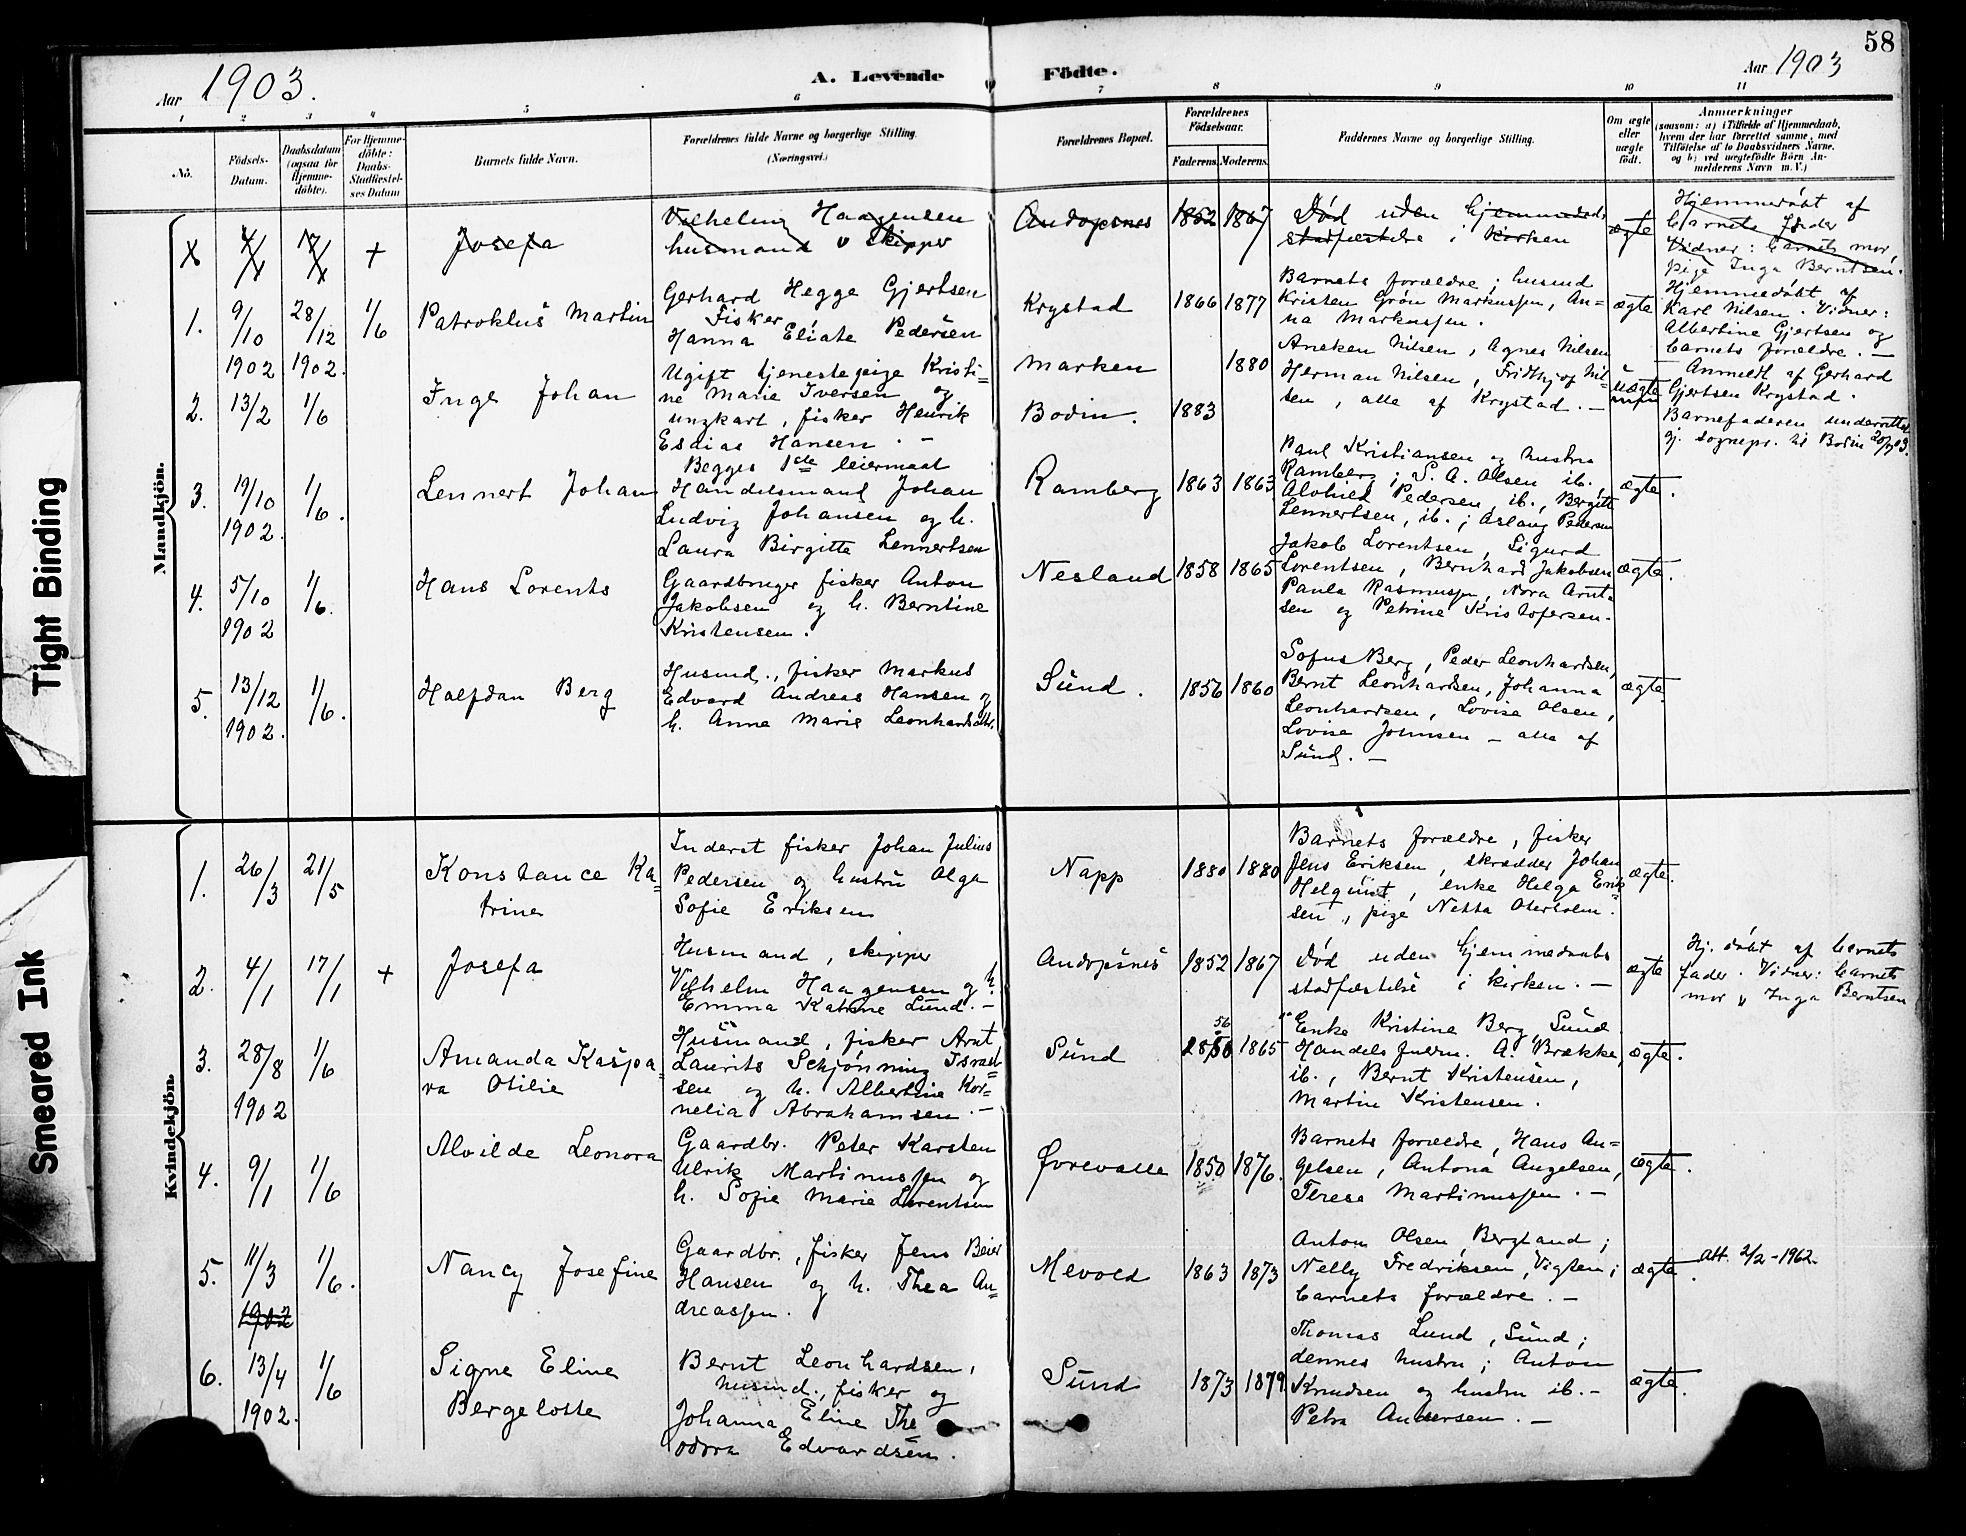 58
Aar 1903.
A. Levende Födte.
Aar 1903
1 2 3 4 5 6 7 8 9 10 11
No.
Födsels-
Datum.
Daabsdatum
(ogsaa for
Hjemme-
döbte).
For Hjemme-
döbte:
Daabs-
Stadfæstel-
ses Datum
Barnets fulde Navn.
Forældrenes fulde Navne og borgerlige Stilling.
(Næringsvei.)
Forældrenes Bopæl.
Forældrenes
Födselsaar.
Faderens. Moderens.
Faddernes Navne og borgerlige Stilling.
Om ægte
eller
uægte
födt.
Anmærkninger
(saasom: a) i Tilfælde af Hjemmedaab,
hvem der har forrettet samme, med
Tilföielse af to Daabsvidners Navne,
og b) ved uægtefödte Börn An-
melderens Navn m. V.)
Mandkjön.
4/1 17/1 + Josefa
Vilhelm Haagensen
husmand v skipper
Andopsnes 1852 1867
Död uden hjemmedaabs
stadfæstelse i kirken
ægte
Hjemmedöbt af
barnets fader
Vidner: barnets mor,
pige Inga Berntsen.
1. 9/10 1902 28/12 1902. 1/6 Patroklus Martin
Gerhard Hegge Gjertsen
Fisker
Hanna Eliate Pedersen
Krystad 1866 1877
Barnets forældre; husmd
Kristen Grön Markussen, An-
na Markussen.
ægte
Hjemmedöbt af
Karl Nilsen. Vidner:
Albertine Gjertsen og
barnets forældre. —
2. 13/2 1/6 Inge Johan
Ugift tjenestepige Kristi-
ne Marie Iversen og
ungkarl, fisker Henrik
Esaias Hansen. —
Begges 1ste leiermaal
Marken 1880
Bodin. 1883
Aneken Nilsen, Agnes Nilsen
Herman Nilsen, Fridthjof Nil-
sen, alle af Krystad. —
uægte
Anmeldt af Gerhard
Gjertsen Krystad.
Barnefaderen underrettet
gj. sognepr. til Bodin
3. 19/10 1902. 1/6. Lennert Johan
Handelsmand Johan
Ludvig Johansen og h.
Laura Birgitte Lennertsen
Ramberg 1863 1863
Paul Kristiansen og hustru
Ramberg; S. A. Olsen ib.,
Alvhild Pedersen ib., Bergitte
Lennertsen, ib.; Aslaug Pedersen
ægte.
4. 5/10 1902 1/6. Hans Lorents
Gaardbruger fisker Anton
Jakobsen og h. Berntine
Kristensen.
Nesland 1858 1865
Jakob Lorentsen, Sigurd
Lorentsen, Bernhard Jakobsen
Paula Rasmussen, Nora Arnt-
sen og Petrine Kristofersen.
ægte.
5. 13/12 1902. 1/6. Halfdan Berg
Husmd., fisker Markus
Edvard Andreas Hansen og
h. Anne Marie Leonhardsdtr.
Sund. 1856 1860
Sofus Berg, Peder Leonhardsen,
Bernt Leonhardsen, Johanna
Leonhardsen, Lovise Olsen,
Lovise Johnsen — alle af
Sund. —
ægte.
Kvindekjön.
1. 26/3 21/5 Konstance Ka-
trine
Inderst fisker Johan Julius
Pedersen og hustru Olga
Sofie Eriksen
Napp 1880 1880
Barnets forældre, fisker
Jens Eriksen, skrædder Johan
Helquist, enke Helga Erik-
sen, pige Netta Oterholm.
ægte.
2. 4/1 17/1 + Josefa
Husmand, skipper
Vilhelm Haagensen og h.
Emma Katrine Lund. —
Andopsnes 1852 1867
Död uden hjemmedaabs
stadfæstelse i kirken. —
ægte
Hj. döbt af barnets
fader. Vidner: barnets
mor v Inga Berntsen
3. 28/8 1902 1/6 Amanda Kaspa-
ra Otilie
Husmand, fisker Arnt
Laurits Schjönning Israel-
sen og h. Albertine Kor-
nelia Abrahamsen. —
Sund 1856 1865
Enke Kristine Berg, Sund
Handelsfuldm. A. Brække,
ib., Bernt Kristensen,
Martin Kristensen.
ægte.
4. 9/1 1/6 Alvilde Leonora
Gaardbr. Peter Karsten
Ulrik Martinussen og
h. Sofie Marie Lorentsen
Örevalle 1850 1876.
Barnets forældre, Hans An-
gelsen, Antona Angelsen,
Terese Martinussen. —
ægte.
5. 11/3 1902 1/6. Nancy Josefine
Gaardbr., fisker Jens Beier
Hansen og h. Thea An-
dreassen.
Mevold 1863 1873
Anton Olsen, Bergland;
Nelly Fredriksen, Vigten;
barnets forældre. —
ægte.
Att. 2/2-1962.
6. 13/4 1902. 1/6 Signe Eline
Bergelotte
Bernt Leonhardsen,
husmd., fisker og
Johanna Eline The-
odora Edvardsen.
Sund 1873 1879
Thomas Lund, Sund;
dennes hustru; Anton
Knudsen og hustru ib. —
Petra Andersen. —
ægte.
Tight Binding
Smeared Ink